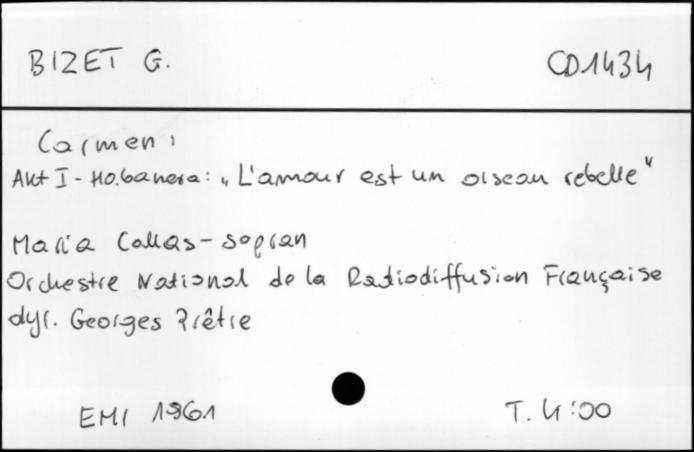 BIZET G. CD1434
Carmen,
Akt I - Habanera: „L'amour est un oiseau rebelle"
Maria Callas - sopran
Orchestre National de la Radiodiffusion Française
dyr. Georges Prêtre
EMI 1961 T. 4:00